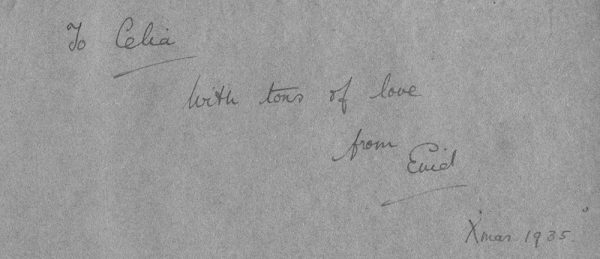 To Celia
With tons of love
from
Enid
"Xmas 1935."